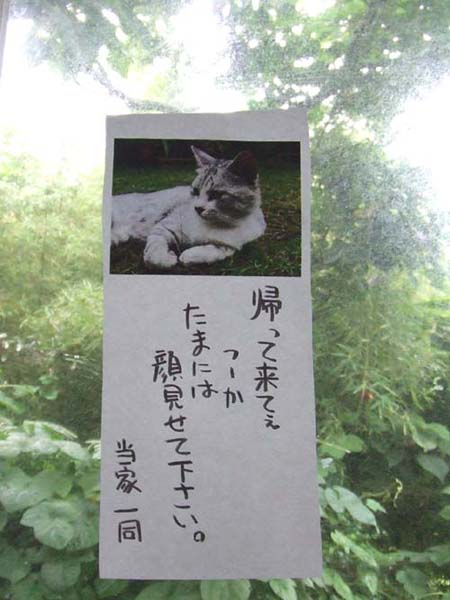 帰って来てぇ
つーか
たまには
顔見せて下さい。
当家一同